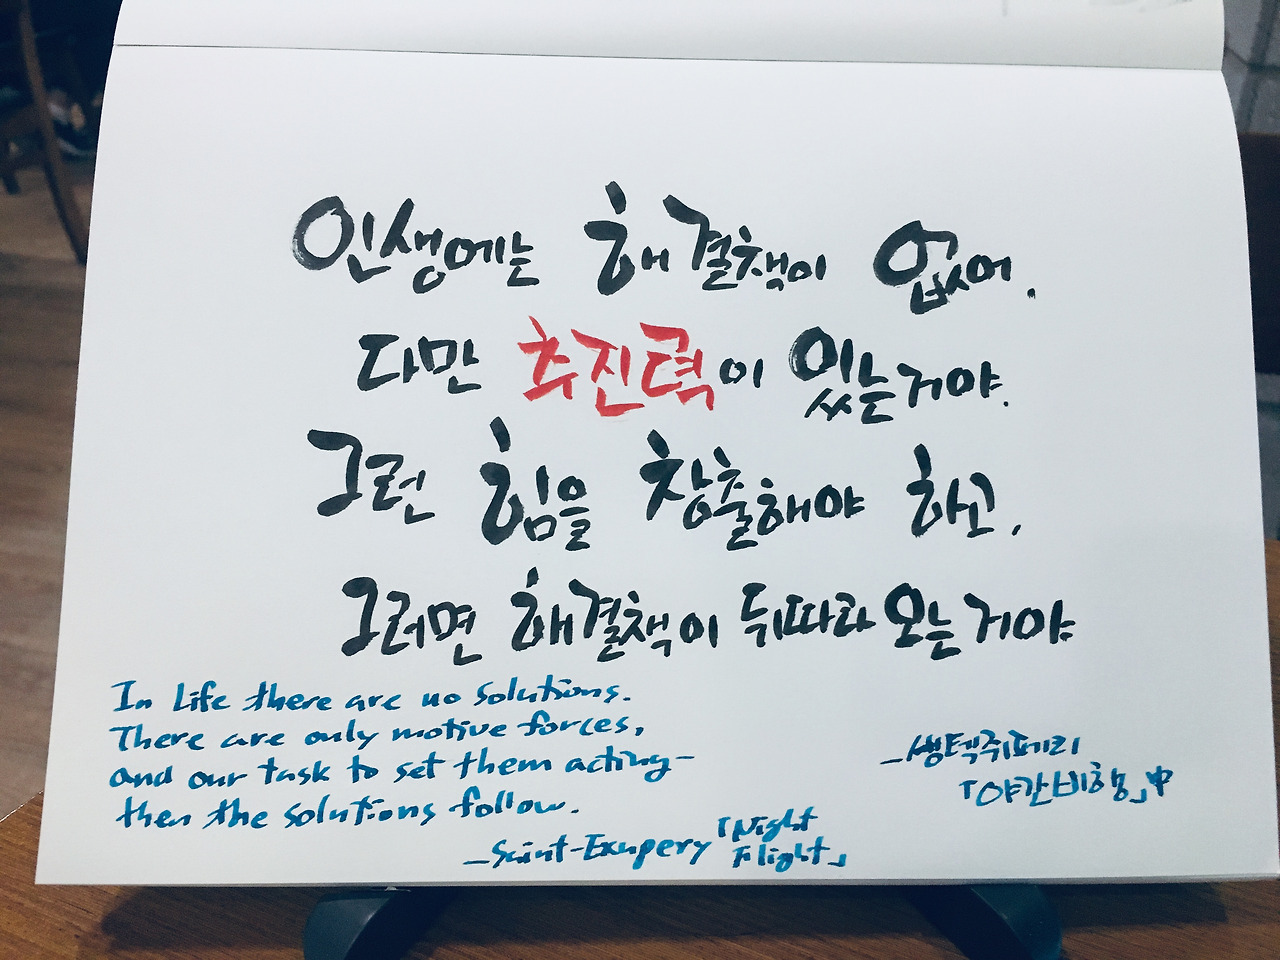 인생에는 해결책이 없어.
다만 추진력이 있는거야.
그런 힘을 창출해야 하고,
그러면 해결책이 뒤따라 오는거야
In Life there are no solutions.
There are only motive forces,
and our task to set them acting-
then the solutions follow.
-Saint-Exupery 「Night
Flight」
-생텍쥐페리
「야간비행」中